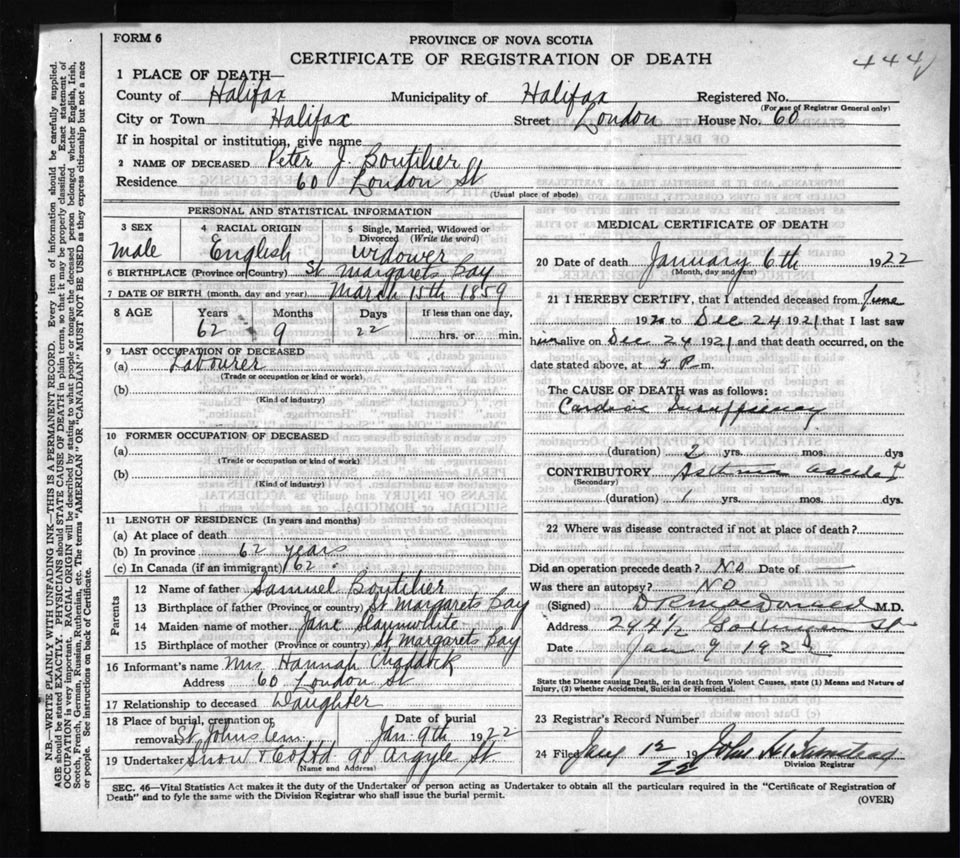 FORM 6
PROVINCE OF NOVA SCOTIA
CERTIFICATE OF REGISTRATION OF DEATH
444
1 PLACE OF DEATH—
County of Halifax Municipality of Halifax Registered No.
(For use of Registrar General only)
City or Town Halifax Street London House No. 60
If in hospital or institution, give name
2 NAME OF DECEASED Peter J. Boutilier
Residence 60 London St
(Usual place of abode)
PERSONAL AND STATISTICAL INFORMATION
3 SEX 4 RACIAL ORIGIN 5 Single, Married, Widowed or Divorced (Write the word)
Male English Widower
6 BIRTHPLACE (Province or Country) St Margarets Bay
7 DATE OF BIRTH (month, day and year) March 15th 1859
8 AGE Years Months Days If less than one day,
62 9 22 hrs. or min.
9 LAST OCCUPATION OF DECEASED
(a) Labourer
(Trade or occupation or kind or work)
(b)
(Kind of industry)
10 FORMER OCCUPATION OF DECEASED
(a)
(Trade or occupation or kind of work)
(b)
(Kind of industry)
11 LENGTH OF RESIDENCE (In years and months)
(a) At place of death
(b) In province 62 years
(c) In Canada (if an immigrant) 62
Parents
12 Name of father Samuel Boutilier
13 Birthplace of father (Province or country) St Margarets Bay
14 Maiden name of mother Jane Slaunwhite
15 Birthplace of mother (Province or country) St Margarets Bay
16 Informant's name Mrs Hannah Chaddock
Address 60 London St
17 Relationship to deceased Daughter
18 Place of burial, cremation or removal St Johns Cem. Date of burial Jan. 9th 1922
19 Undertaker Snow & Co Ltd 90 Argyle St.
(Name and Address)
MEDICAL CERTIFICATE OF DEATH
20 Date of death January 6th 1922
(Month, day and year)
21 I HEREBY CERTIFY, that I attended deceased from June
19 to Dec 24 1921 that I last saw
him alive on Dec 24 1921 and that death occurred, on the
date stated above, at 5 P.m.
The CAUSE OF DEATH was as follows:
Cardiac Insufficiency
(duration) 2 yrs. mos. dys
CONTRIBUTORY Asthma
(Secondary)
(duration) 1 yrs. mos. dys.
22 Where was disease contracted if not at place of death?
Did an operation precede death? No Date of —
Was there an autopsy? No
(Signed) MacDonald M.D.
Address 294½ Gottingen St
Date Jan 9 1922
State the Disease causing Death, or in death from Violent Causes, state (1) Means and Nature of
Injury, (2) whether Accidental, Suicidal or Homicidal.
23 Registrar's Record Number
24 Filed Jany 12 19 22 John H.
Division Registrar
SEC. 46—Vital Statistics Act makes it the duty of the Undertaker or person acting as Undertaker to obtain all the particulars required in the "Certificate of Registration of
Death" and to fyle the same with the Division Registrar who shall issue the burial permit.
(OVER)
N.B.—WRITE PLAINLY WITH UNFADING INK—THIS IS A PERMANENT RECORD. Every item of information should be carefully supplied.
AGE should be stated EXACTLY. PHYSICIANS should STATE CAUSE OF DEATH in plain terms, so that it may be properly classified. Exact statement of
OCCUPATION is very important. RACIAL ORIGIN will be described by stating to what people or tongue the deceased person belonged whether English, Irish,
Scotch, French, German, Russian, Ruthenian, etc. The terms "AMERICAN" OR "CANADIAN" MUST NOT BE USED as they express citizenship but not a race
or people. See instructions on back of Certificate.